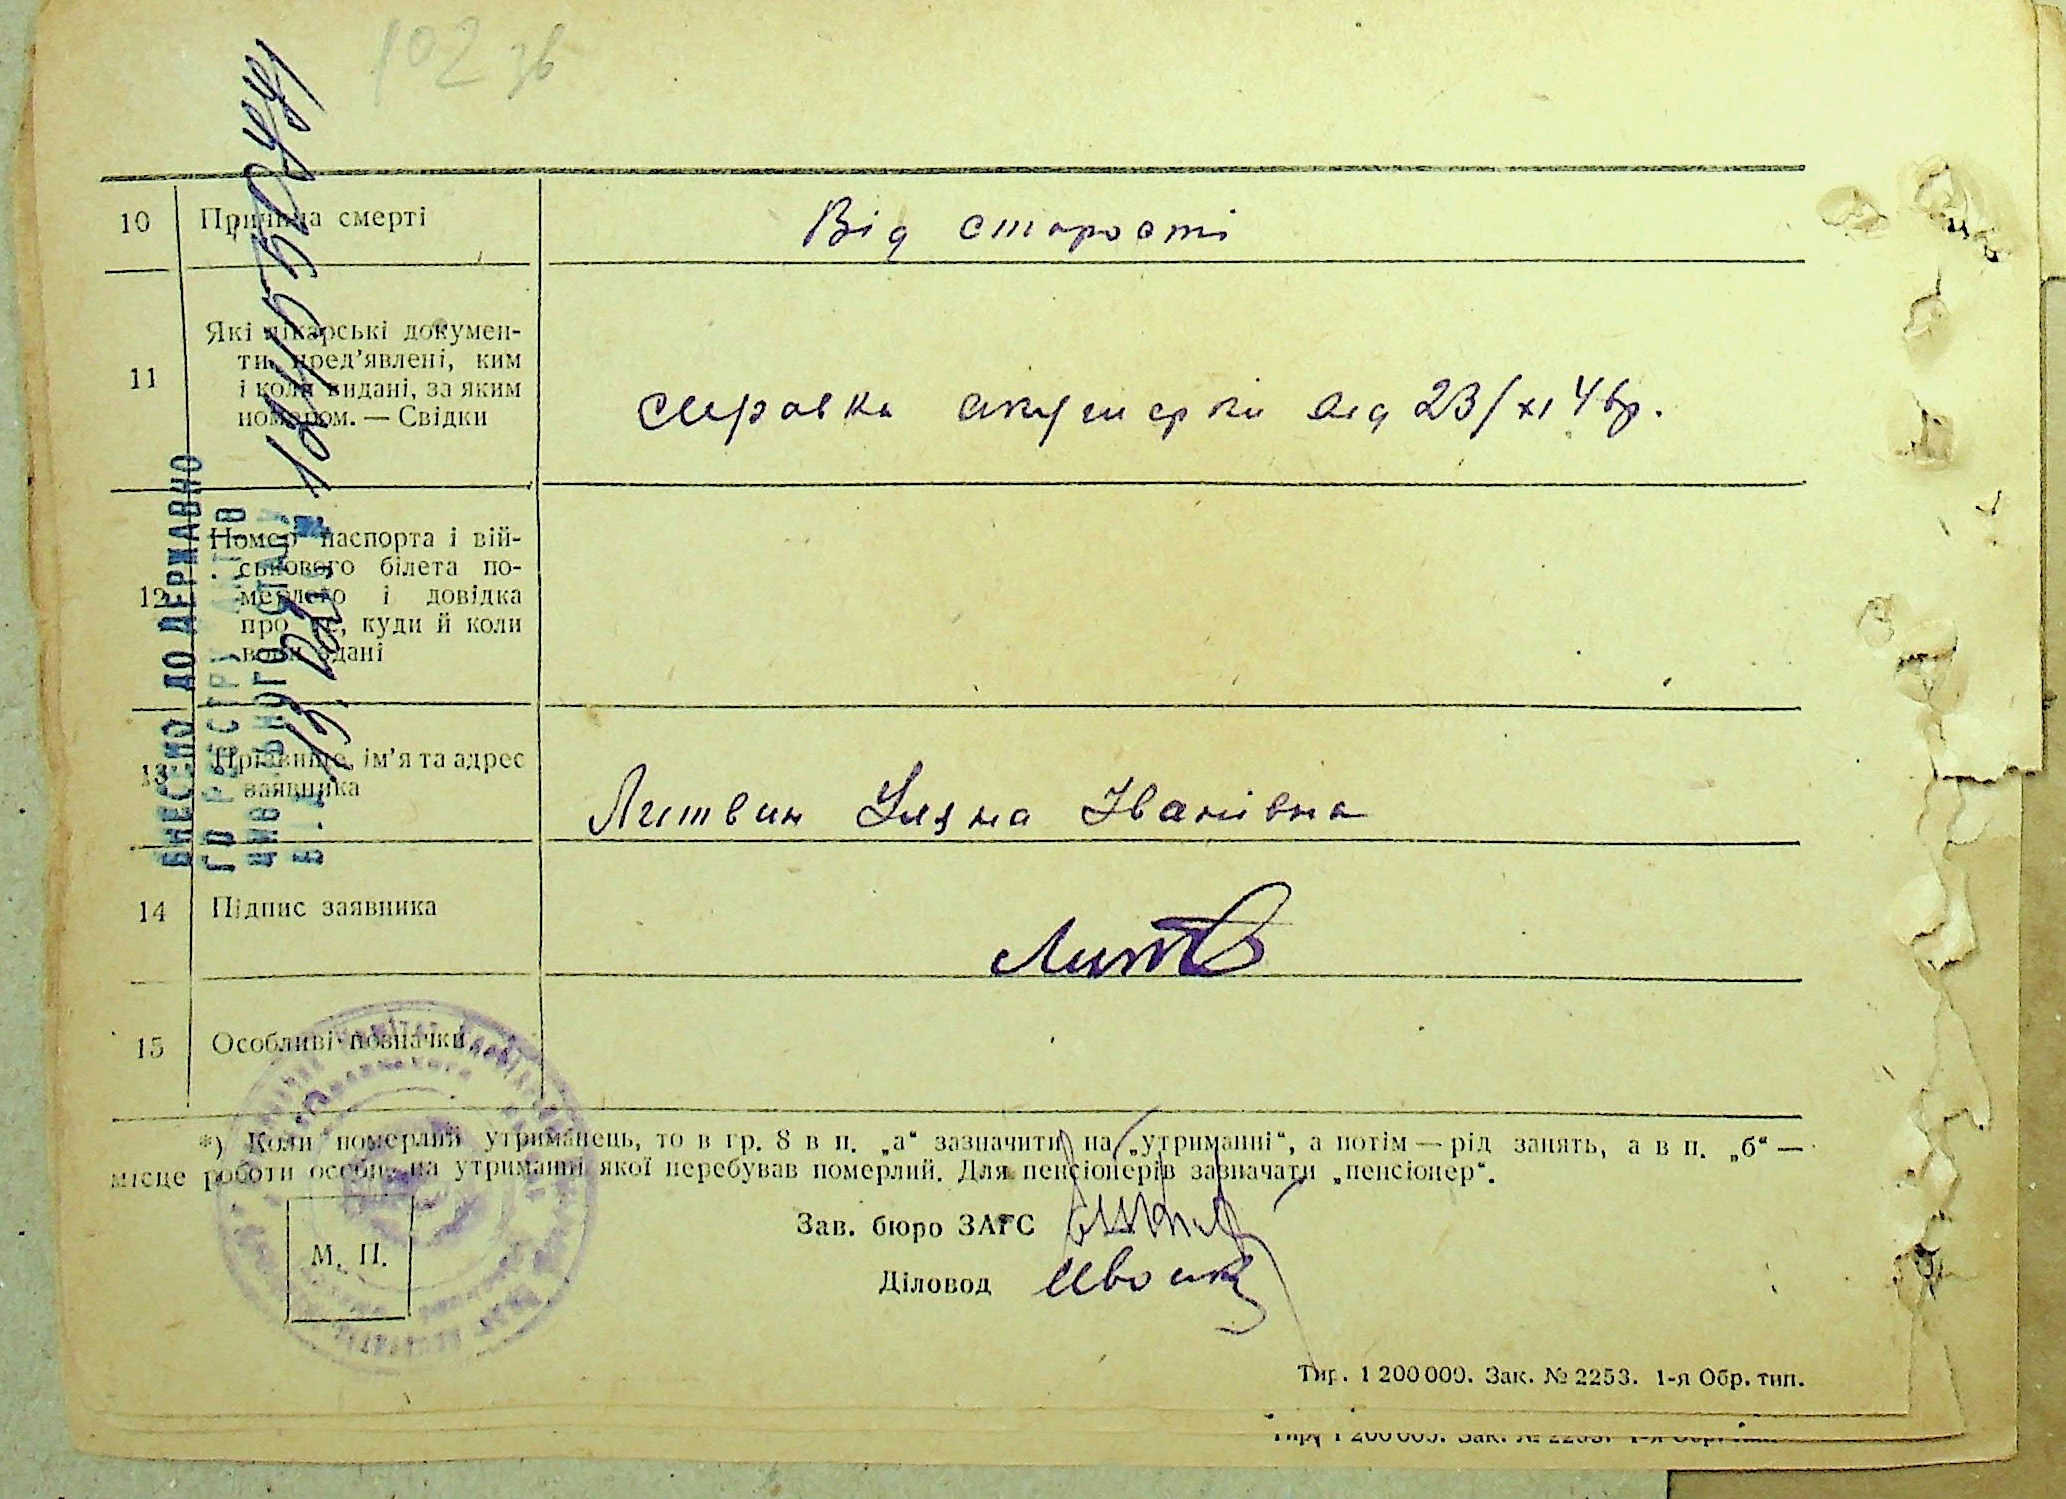 102 зв
10 Причина смерті
Від старости
11 Які лікарські докумен-
ти пред’явлені, ким
і коли видані, за яким
номером. — Свідки
справка акушерки від 23/XI 46р.
12 Номер паспорта і вій-
ськового білета по-
мерлого і довідка
про те, куди й коли
вони здані
13 Прізвище, ім’я та адрес
заявника
Литвин Уляна Іванівна
14 Підпис заявника
Литв
15 Особливі позначки
*) Коли померлий утриманець, то в гр. 8 в п. „а“ зазначити на „утриманні“, а потім — рід занять, а в п. „б“ —
місце роботи особи, на утриманні якої перебував померлий. Для пенсіонерів зазначати „пенсіонер“.
М. П.
Зав. бюро ЗАГС
Діловод
Тир. 1 200 000. Зак. № 2253. 1-я Обр. тип.
Тир. 1 200 000. Зак. № 2253. 1-я Обр. тип.
ВНЕСЕНО ДО ДЕРЖАВНО
ГО РЕЄСТРУ АКТІВ
ЦИВІЛЬНОГО СТАНУ